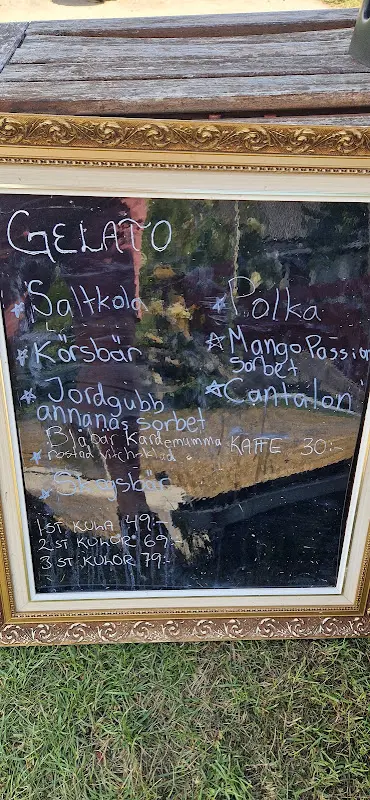 GELATO
Saltkola
Körsbär
Jordgubb
annanas sorbet
Blåbär Kardemumma
rostad vitchoklad
Skogsbär
Polka
Mango Passion
sorbet
Cantalon
KAFFE 30:-
1 ST KULA 49:-
2 ST KULOR 69:-
3 ST KULOR 79:-